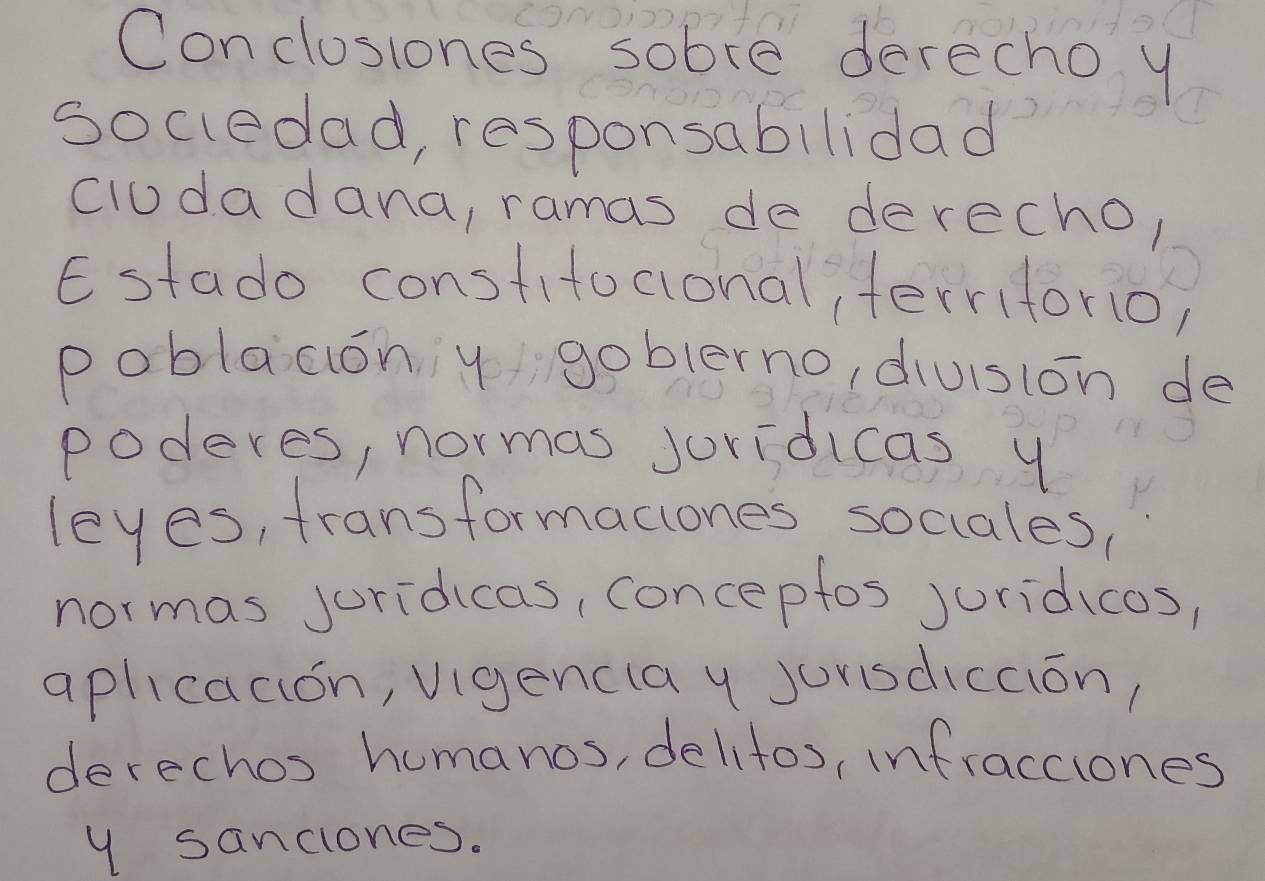 Conclusiones sobre derecho y
sociedad, responsabilidad
ciudadana, ramas de derecho,
Estado constitucional, territorio,
población y gobierno, división de
poderes, normas jurídicas y
leyes, transformaciones sociales,
normas jurídicas, conceptos jurídicos,
aplicación, vigencia y jurisdicción,
derechos humanos, delitos, infracciones
y sanciones.